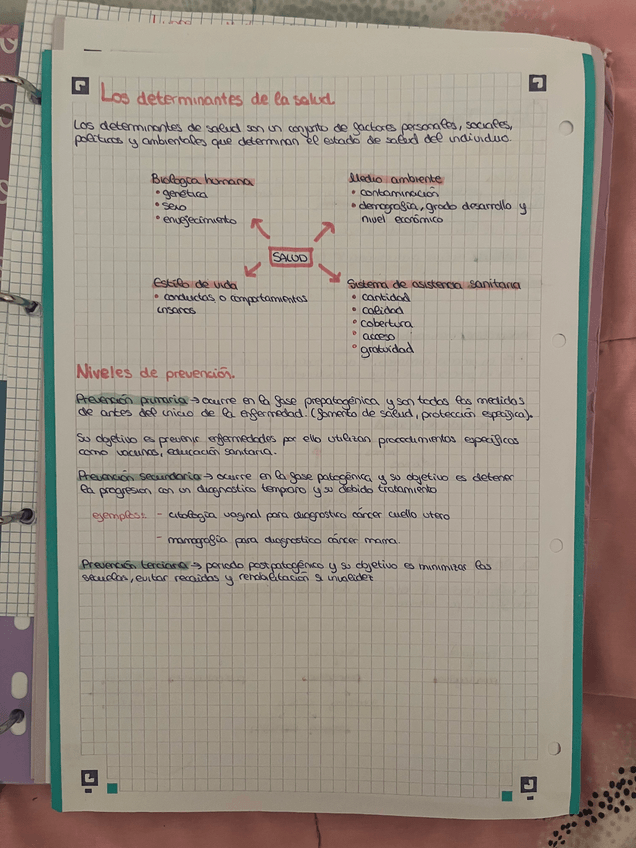 Los determinantes de la salud.
Los determinantes de salud son un conjunto de factores personales, sociales,
políticos y ambientales que determinan el estado de salud del individuo.
Biología humana
• genética
• sexo
• envejecimiento
Medio ambiente
• contaminación
• demografía, grado desarrollo y
nivel económico
SALUD
Estilo de vida
• conductas o comportamientos
insanos
Sistema de asistencia sanitaria
• cantidad
• calidad
• cobertura
• acceso
• gratuidad
Niveles de prevención.
Prevención primaria → ocurre en la fase prepatogénica y son todas las medidas
de antes del inicio de la enfermedad. (fomento de salud, protección específica).
Su objetivo es prevenir enfermedades por ello utilizan procedimientos específicos
como vacunas, educación sanitaria.
Prevención secundaria → ocurre en la fase patogénica y su objetivo es detener
la progresión con un diagnostico temprano y su debido tratamiento
ejemplos: - citología vaginal para diagnostico cáncer cuello utero
- mamografía para diagnostico cáncer mama.
Prevención terciaria → periodo postpatogénico y su objetivo es minimizar las
secuelas, evitar recaidas y rehabilitación si invalidez